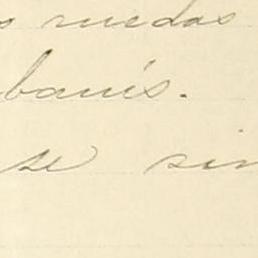 s ruedas
banís.
se sin